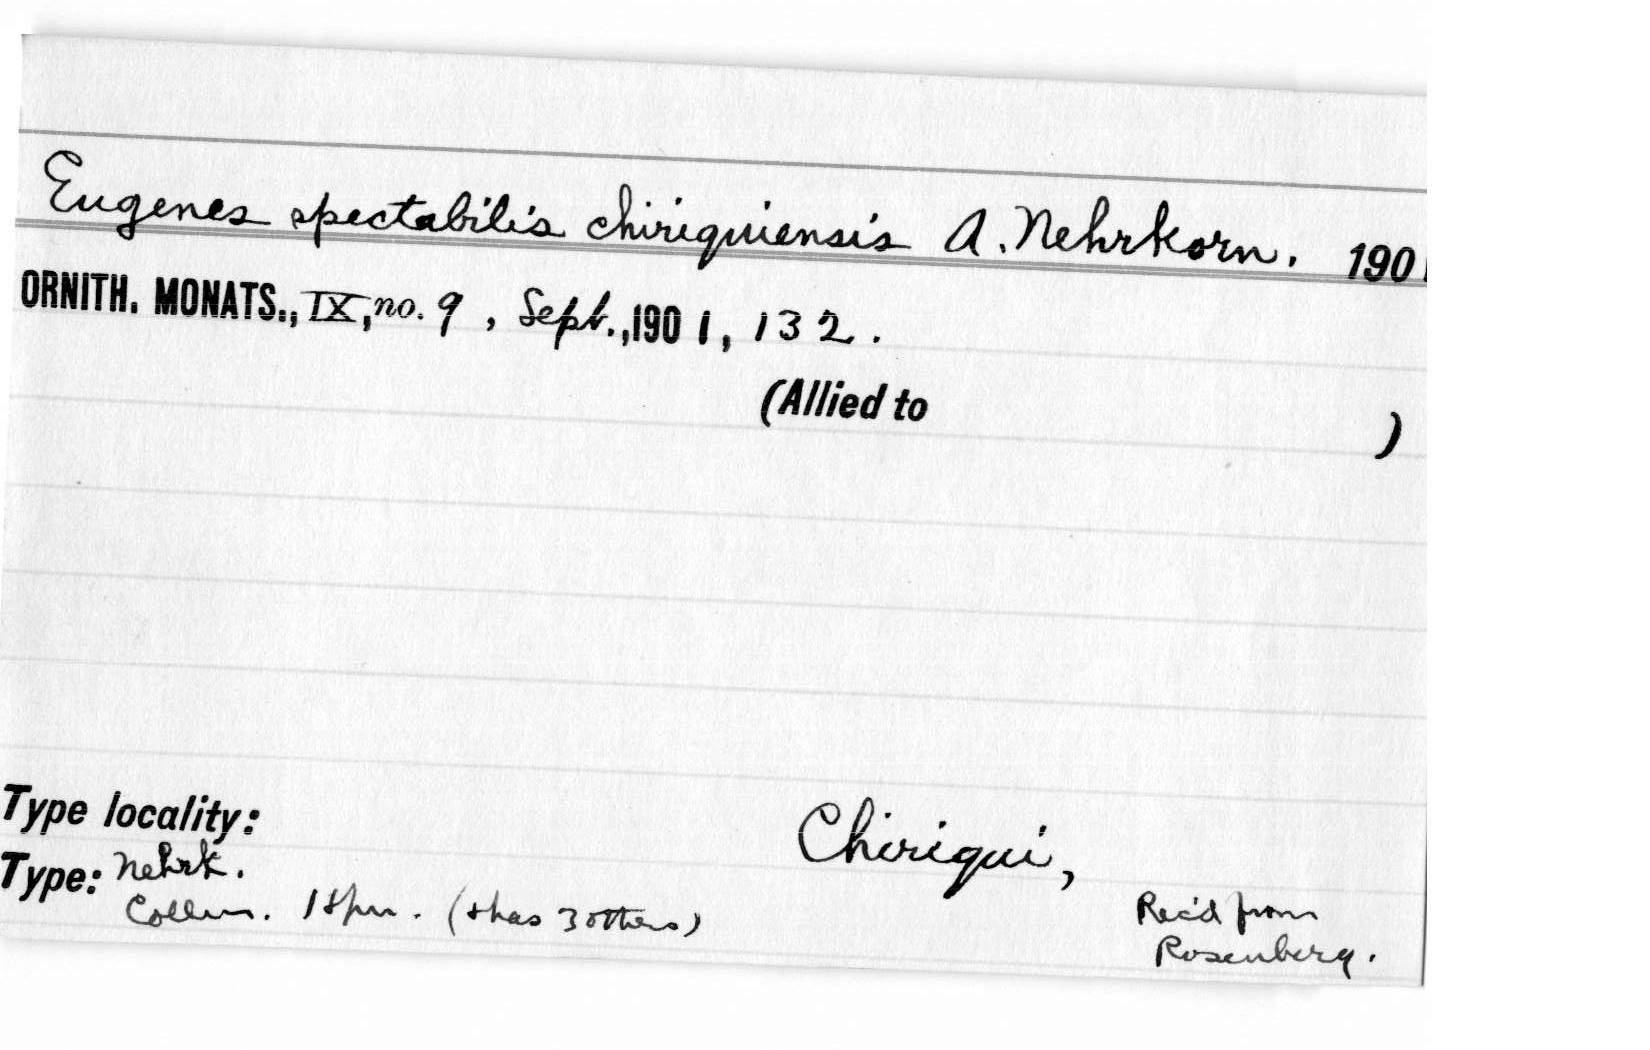 Eugenes spectabilis chiriquiensis A. Nehrkorn. 1901
ORNITH. MONATS., IX, no. 9, Sept., 1901, 132.
(Allied to )
Type locality: Chiriqui,
Type: Nehrk.
Collun. 1 spn. (& has 3 others) Rec'd from
Rosenberg.